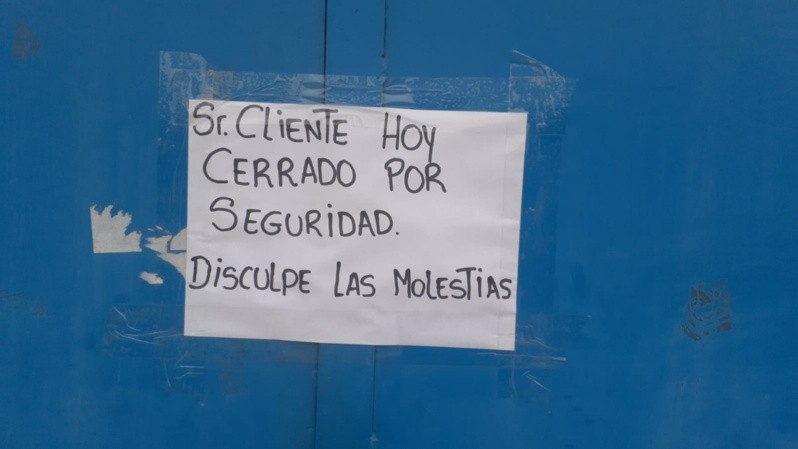 Sr. CLiENTE HOY
CERRADO POR
SEGURiDAD.
DiSCULPE LAS MOLESTiAS